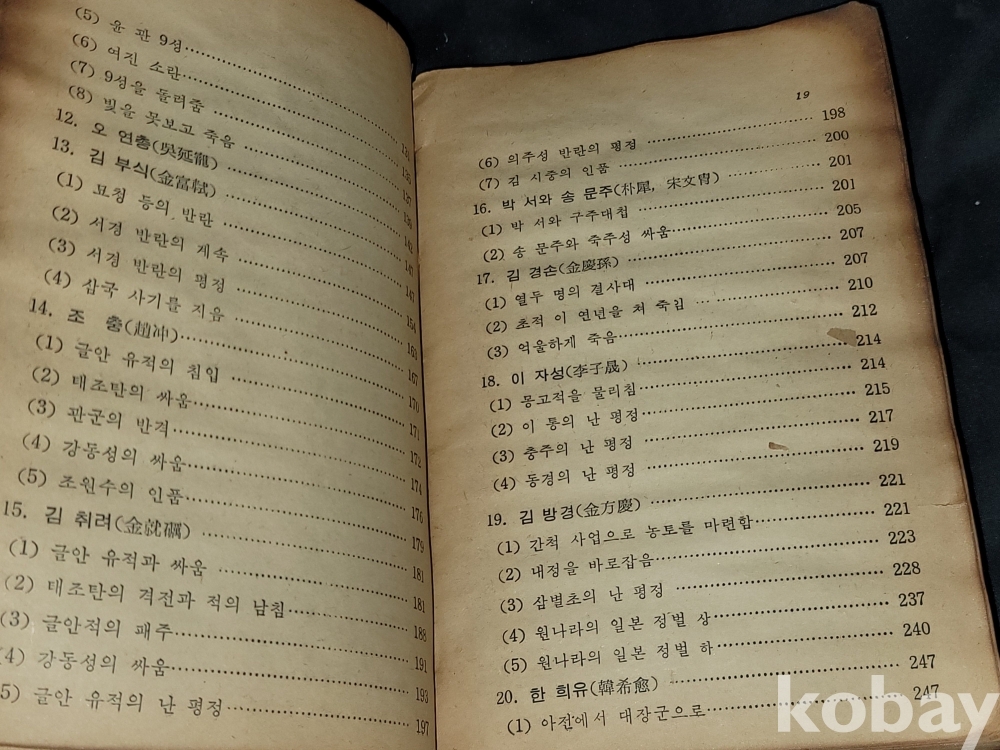 (5) 윤 관 9성
(6) 여진 소란
(7) 9성을 돌려줌
(8) 빛을 못보고 죽음
12. 오 연총(吳延寵)
13. 김 부식(金富軾)
(1) 묘청 등의 반란
(2) 서경 반란의 계속
(3) 서경 반란의 평정 147
(4) 삼국 사기를 지음 154
14. 조 충(趙冲) 161
(1) 글안 유적의 침입 167
(2) 태조탄의 싸움 170
(3) 관군의 반격 171
(4) 강동성의 싸움 172
(5) 조원수의 인품 174
15. 김 취려(金就礪) 176
(1) 글안 유적과 싸움 179
(2) 태조탄의 격전과 적의 남침 181
(3) 글안적의 패주 188
(4) 강동성의 싸움 191
(5) 글안 유적의 난 평정 193
197
19
(6) 의주성 반란의 평정 198
(7) 김 시중의 인품 200
16. 박 서와 송 문주(朴犀, 宋文冑) 201
(1) 박 서와 구주대첩 201
(2) 송 문주와 죽주성 싸움 205
17. 김 경손(金慶孫) 207
(1) 열두 명의 결사대 207
(2) 초적 이 연년을 쳐 죽김 210
(3) 억울하게 죽음 212
18. 이 자성(李子晟) 214
(1) 몽고적을 물리침 214
(2) 이 통의 난 평정 215
(3) 충주의 난 평정 217
(4) 동경의 난 평정 219
19. 김 방경(金方慶) 221
(1) 간척 사업으로 농토를 마련함 221
(2) 내정을 바로잡음 223
(3) 삼별초의 난 평정 228
(4) 원나라의 일본 정벌 상 237
(5) 원나라의 일본 정벌 하 240
20. 한 희유(韓希愈) 247
(1) 아전에서 대장군으로 247
kobay